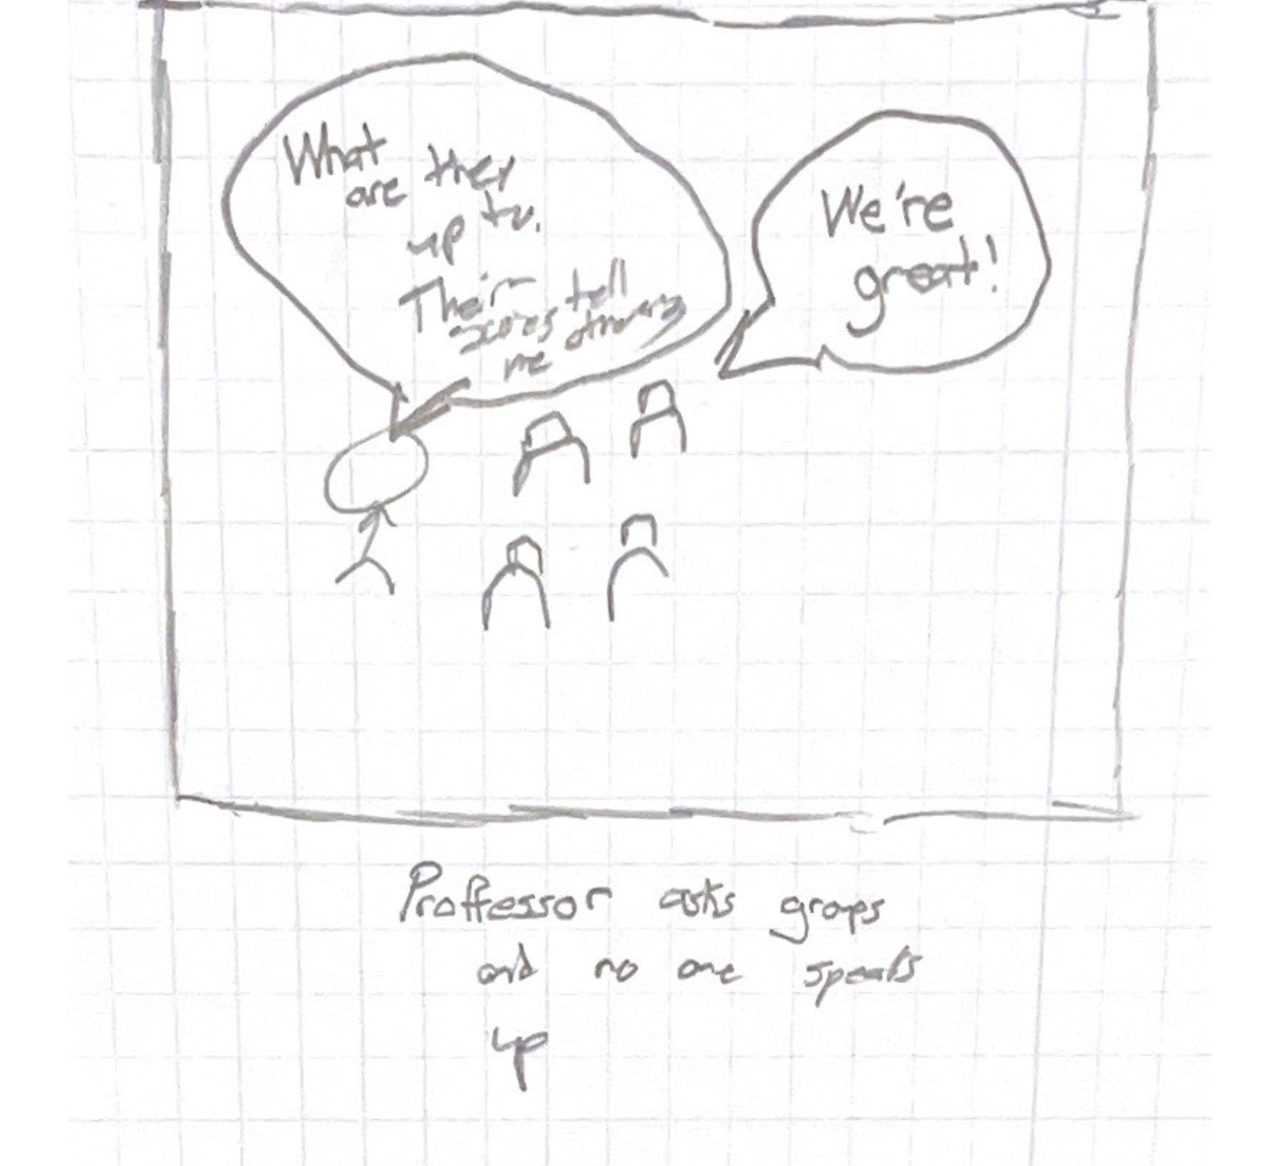 What
are they
up to.
Their
scores tell
me otherwise
We're
great!
Proffessor asks grops
and no one speaks
up